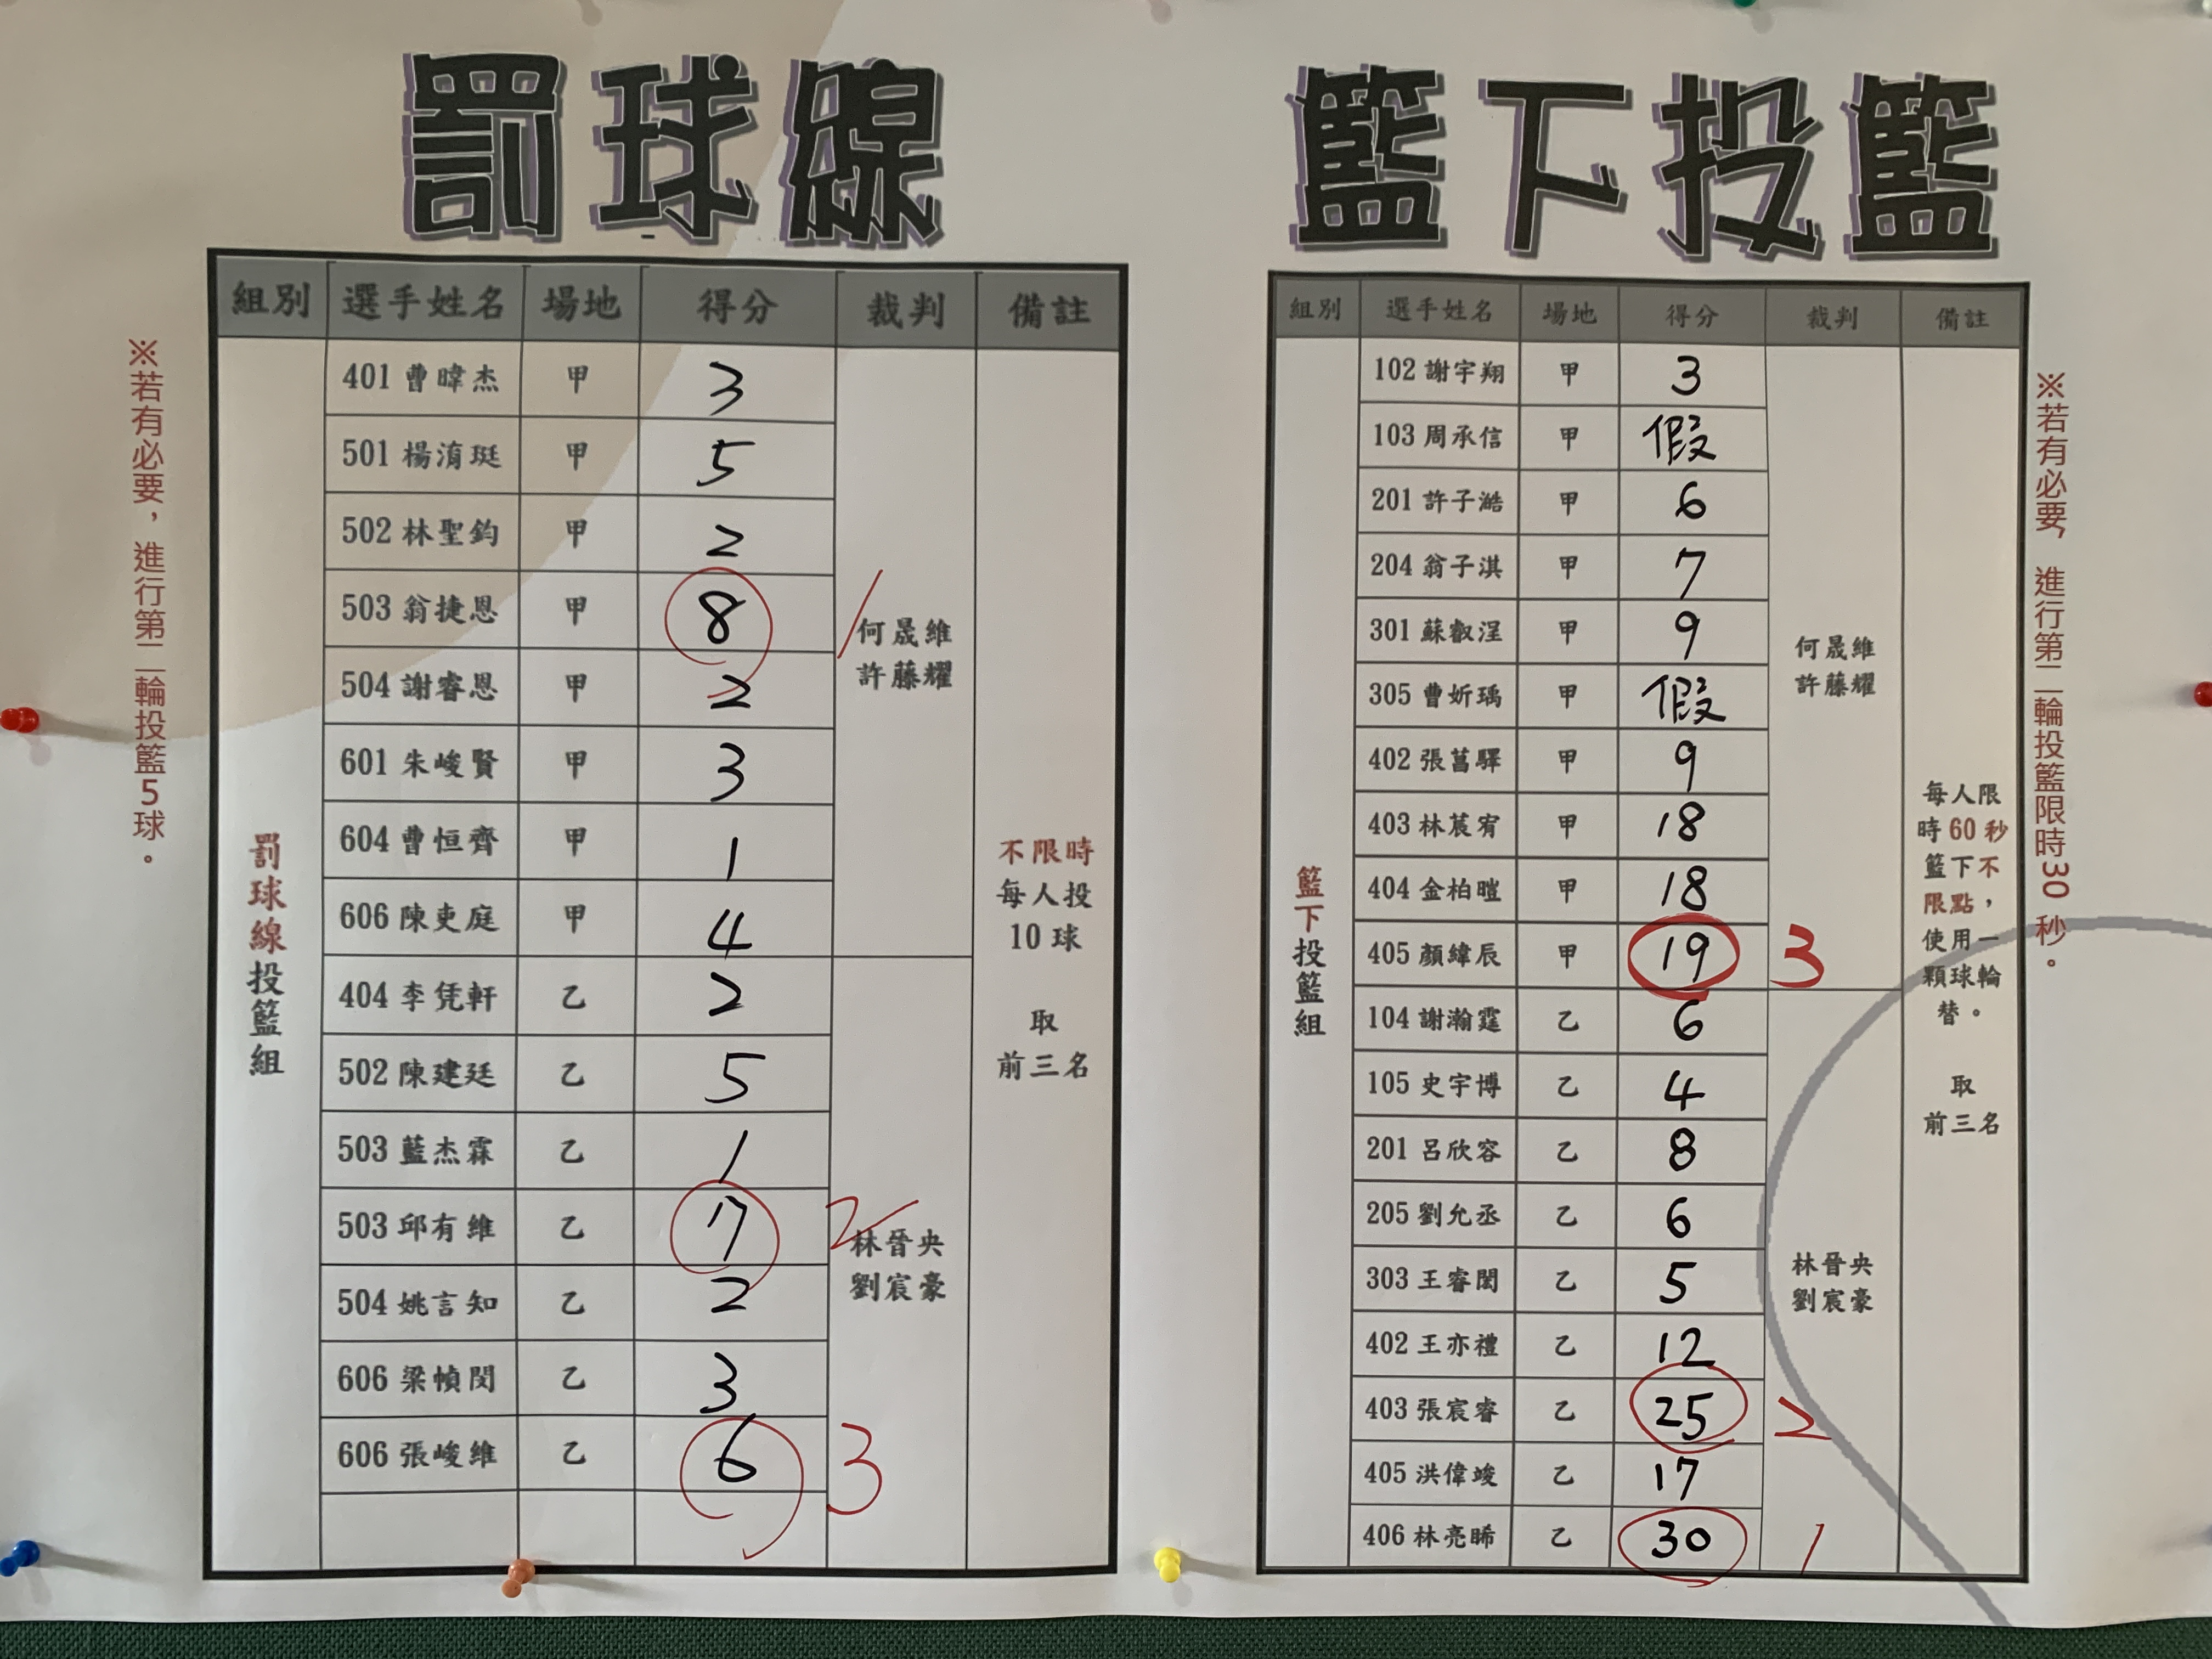 罰球線
組別 選手姓名 場地 得分 裁判 備註
401 曹暐杰 甲 3
501 楊淯珽 甲 5
502 林聖鈞 甲 2
503 翁捷恩 甲 8 1
504 謝睿恩 甲 2
601 朱峻賢 甲 3
604 曹恒齊 甲 1
606 陳吏庭 甲 4
404 李凭軒 乙 2
502 陳建廷 乙 5
503 藍杰霖 乙 1
503 邱有維 乙 7 2
504 姚言知 乙 2
606 梁幀閔 乙 3
606 張峻維 乙 6 3
罰球線投籃組
何晟維
許藤耀
林晉央
劉宸豪
不限時
每人投
10 球
取
前三名
※若有必要，進行第二輪投籃5球。
籃下投籃
組別 選手姓名 場地 得分 裁判 備註
102 謝宇翔 甲 3
103 周承信 甲 假
201 許子澔 甲 6
204 翁子淇 甲 7
301 蘇叡浧 甲 9
305 曹妡瑀 甲 假
402 張菖驛 甲 9
403 林莀宥 甲 18
404 金柏暟 甲 18
405 顏緯辰 甲 19 3
104 謝瀚霆 乙 6
105 史宇博 乙 4
201 呂欣容 乙 8
205 劉允丞 乙 6
303 王睿閎 乙 5
402 王亦禮 乙 12
403 張宸睿 乙 25 2
405 洪偉竣 乙 17
406 林亮晞 乙 30 1
籃下投籃組
何晟維
許藤耀
林晉央
劉宸豪
每人限
時 60 秒
籃下不
限點，
使用一
顆球輪
替。
取
前三名
※若有必要，進行第二輪投籃限時30 秒。